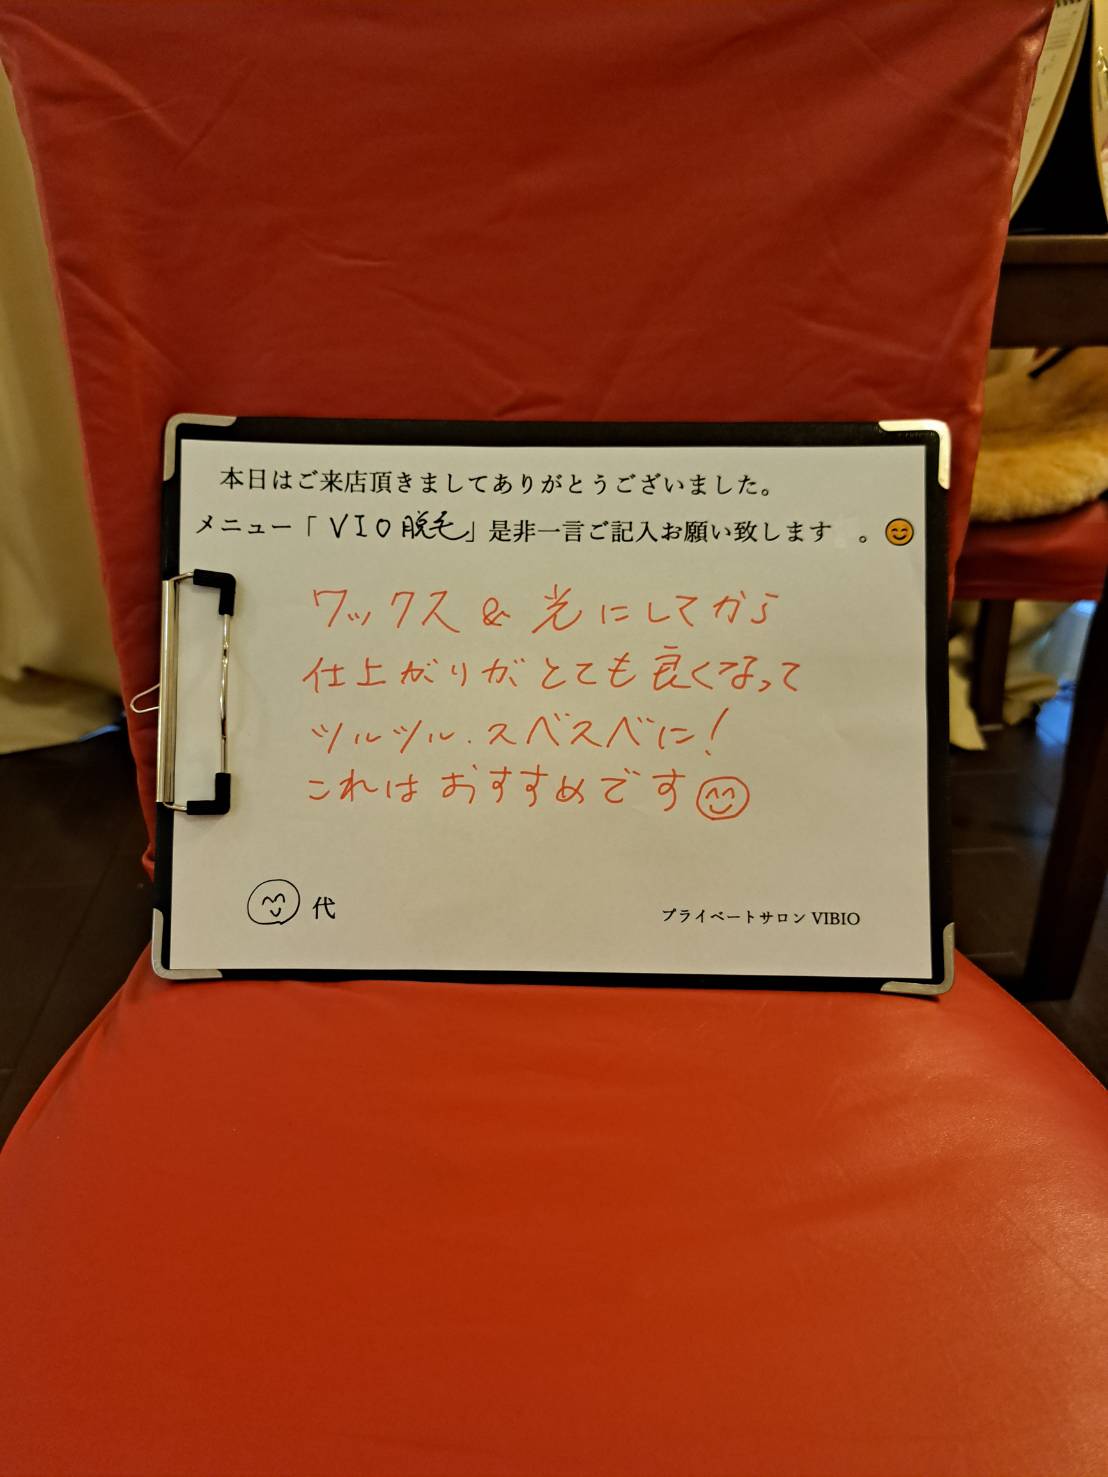 本日はご来店頂きましてありがとうございました。
メニュー「VIO脱毛」是非一言ご記入お願い致します 。
ワックス & 光にしてから
仕上がりがとても良くなって
ツルツル.スベスベに!
これはおすすめです
代
プライベートサロン VIBIO